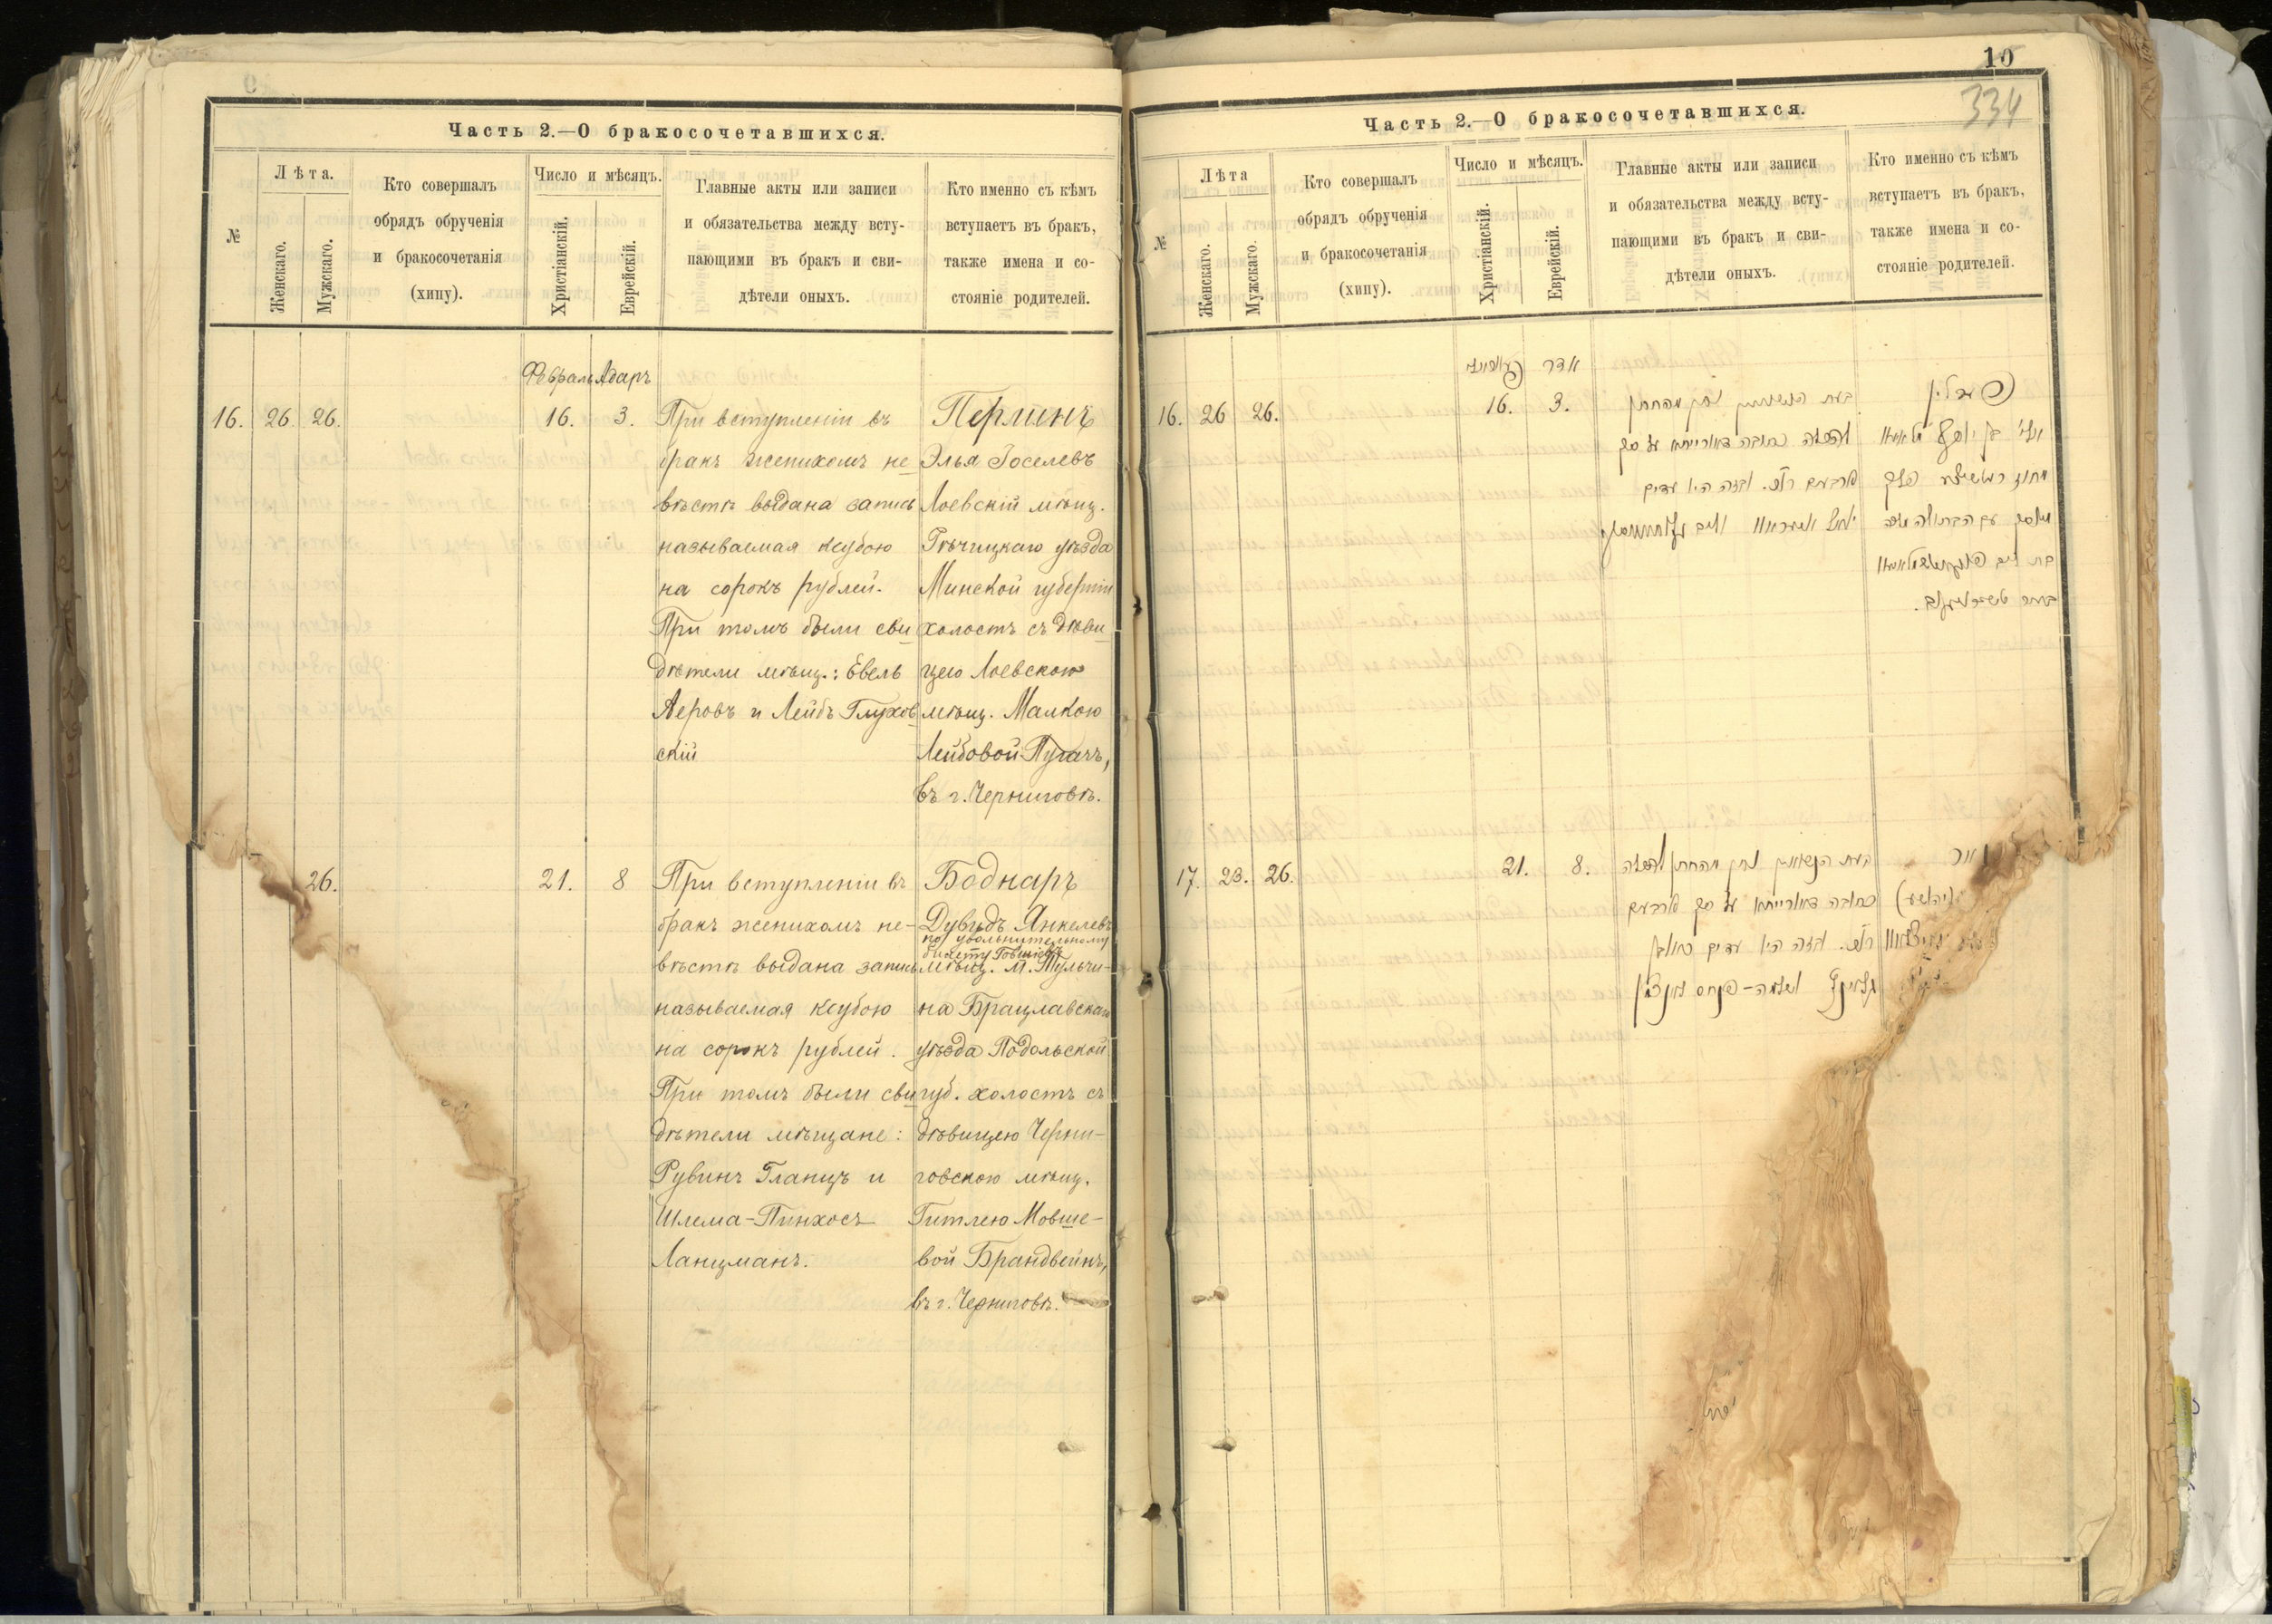 Часть 2.—О бракосочетавшихся.
№
Лѣта.
Женскаго.
Мужскаго.
Кто совершалъ
обрядъ обрученія
и бракосочетанія
(хипу).
Число и мѣсяцъ.
Христіанскій.
Еврейскій.
Главные акты или записи
и обязательства между всту-
пающими въ бракъ и сви-
дѣтели оныхъ.
Кто именно съ кѣмъ
вступаетъ въ бракъ,
также имена и со-
стояніе родителей.
Февраль Адаръ
16. 26 26. 16. 3.
При вступленіи въ
бракъ женихомъ не-
вѣстѣ выдана запись
называемая ксубою
на сорокъ рублей.
При томъ были сви
дѣтели мѣщ.: Евель
Аеровъ и Лейбъ Глухов
скій
Перлинъ
Элья Іоселевъ
Лоевскій мѣщ.
Рѣчицкаго уѣзда
Минской губерніи
холостъ съ дѣви
цею Лоевскою
мѣщ. Малкою
Лейбовой Пугачъ,
въ г. Черниговѣ.
26. 21. 8
При вступленіи въ
бракъ женихомъ не-
вѣстѣ выдана запись
называемая ксубою
на сорокъ рублей.
При томъ были сви
дѣтели мѣщане:
Рувинъ Гланцъ и
Шлема-Пинхосъ
Ланцманъ.
Боднаръ
Дувидъ Янкелевъ
по увольнительному
билету
мѣщ. м. Тульчи-
на Брацлавскаго
уѣзда Подольской
губ. холостъ съ
дѣвицею Черни-
говскою мѣщ.
Гитлею Мовше-
вой Брандвейнъ,
въ г. Черниговѣ.
10
334
Часть 2.—О бракосочетавшихся.
№
Лѣта
Женскаго.
Мужскаго.
Кто совершалъ
обрядъ обрученія
и бракосочетанія
(хипу).
Число и мѣсяцъ.
Христіанскій.
Еврейскій.
Главные акты или записи
и обязательства между всту-
пающими въ бракъ и сви-
дѣтели оныхъ.
Кто именно съ кѣмъ
вступаетъ въ бракъ,
также имена и со-
стояніе родителей.
אדר
16. 26 26. 16. 3.
בעת הנשואין נתן מהחתן
להכלה כתובה דאורייתא על סך
ארבעים רו״כ. ובזה היו עדים
פערלין
17. 23. 26. 21. 8.
בעת הנשואין נתן מהחתן להכלה
כתובה דאורייתא על סך ארבעים
רו״כ. ובזה היו עדים ראובן
גלאנץ ושלמה-פנחס לאנצמאן